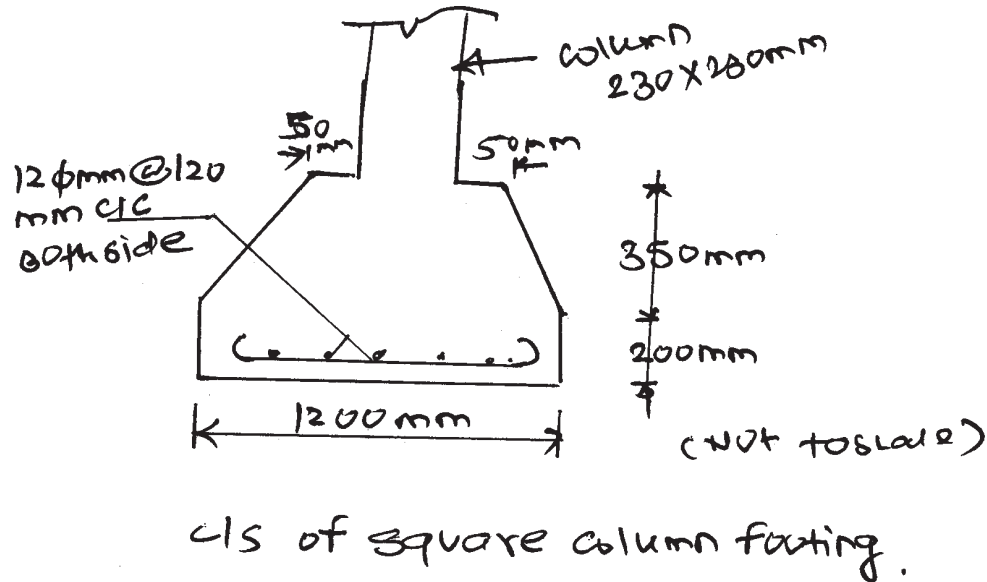 column
230X230mm
50
mm
50mm
12ϕmm@120
mm c/c
Both side
350mm
200mm
1200mm
(Not to scale)
c/s of square column footing.